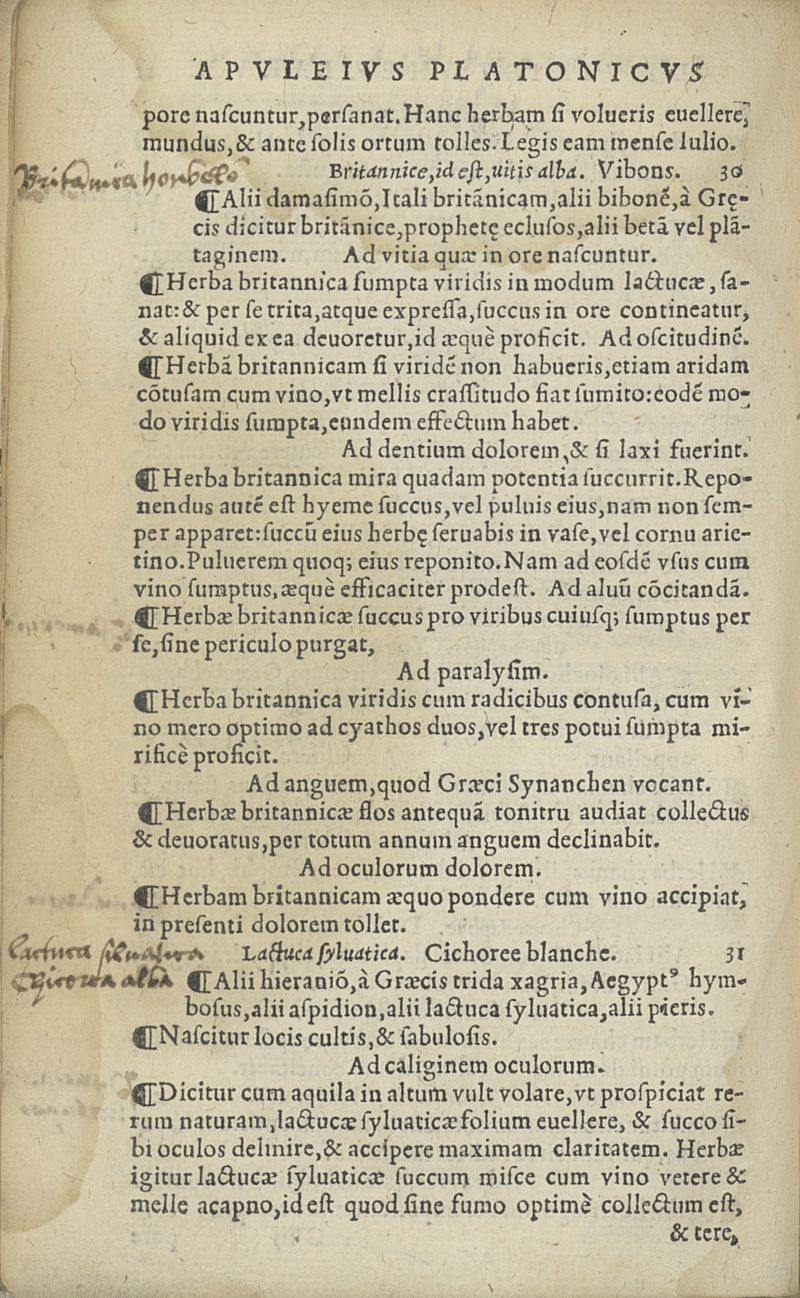 APVLEIVS PLATONICVS
pore naſcuntur, perſanat. Hanc herbam ſi volueris euellere,
mundus, & ante ſolis ortum tolles. Legis eam menſe Iulio.
Britannice, id eſt, uitis alba. Vibons. 30
¶Alii damaſimō, Itali britānicam, alii bibonē, à Grę-
cis dicitur britānice, prophetę ecluſos, alii betā vel plā-
taginem. Ad vitia quæ in ore naſcuntur.
¶Herba britannica ſumpta viridis in modum lactucæ, ſa-
nat: & per ſe trita, atque expreſſa, ſuccus in ore contineatur,
& aliquid ex ea deuoretur, id æquè proficit. Ad oſcitudinē.
¶Herbā britannicam ſi viridē non habueris, etiam aridam
cōtuſam cum vino, vt mellis craſſitudo fiat ſumito: eodē mo-
do viridis ſumpta, eundem effectum habet.
Ad dentium dolorem, & ſi laxi fuerint.
¶Herba britannica mira quadam potentia ſuccurrit. Repo-
nendus autē eſt hyeme ſuccus, vel puluis eius, nam non ſem-
per apparet: ſuccū eius herbę ſeruabis in vaſe, vel cornu arie-
tino. Puluerem quoq; eius reponito. Nam ad eoſdē vſus cum
vino ſumptus, æquè efficaciter prodeſt. Ad aluū cōcitandā.
¶Herbæ britannicæ ſuccus pro viribus cuiuſq; ſumptus per
ſe, ſine periculo purgat,
Ad paralyſim.
¶Herba britannica viridis cum radicibus contuſa, cum vi-
no mero optimo ad cyathos duos, vel tres potui ſumpta mi-
rificè proficit.
Ad anguem, quod Græci Synanchen vocant.
¶Herbæ britannicæ flos antequā tonitru audiat collectus
& deuoratus, per totum annum anguem declinabit.
Ad oculorum dolorem.
¶Herbam britannicam æquo pondere cum vino accipiat,
in preſenti dolorem tollet.
Lactuca ſyluatica. Cichoree blanche. 31
¶Alii hieraniō, à Græcis trida xagria, Aegyptꝰ hym-
boſus, alii aſpidion, alii lactuca ſyluatica, alii pieris.
¶Naſcitur locis cultis, & ſabuloſis.
Ad caliginem oculorum.
¶Dicitur cum aquila in altum vult volare, vt proſpiciat re-
rum naturam, lactucæ ſyluaticæ folium euellere, & ſucco ſi-
bi oculos delinire, & accipere maximam claritatem. Herbæ
igitur lactucæ ſyluaticæ ſuccum miſce cum vino vetere &
melle acapno, id eſt quod ſine fumo optimè collectum eſt,
& tere,